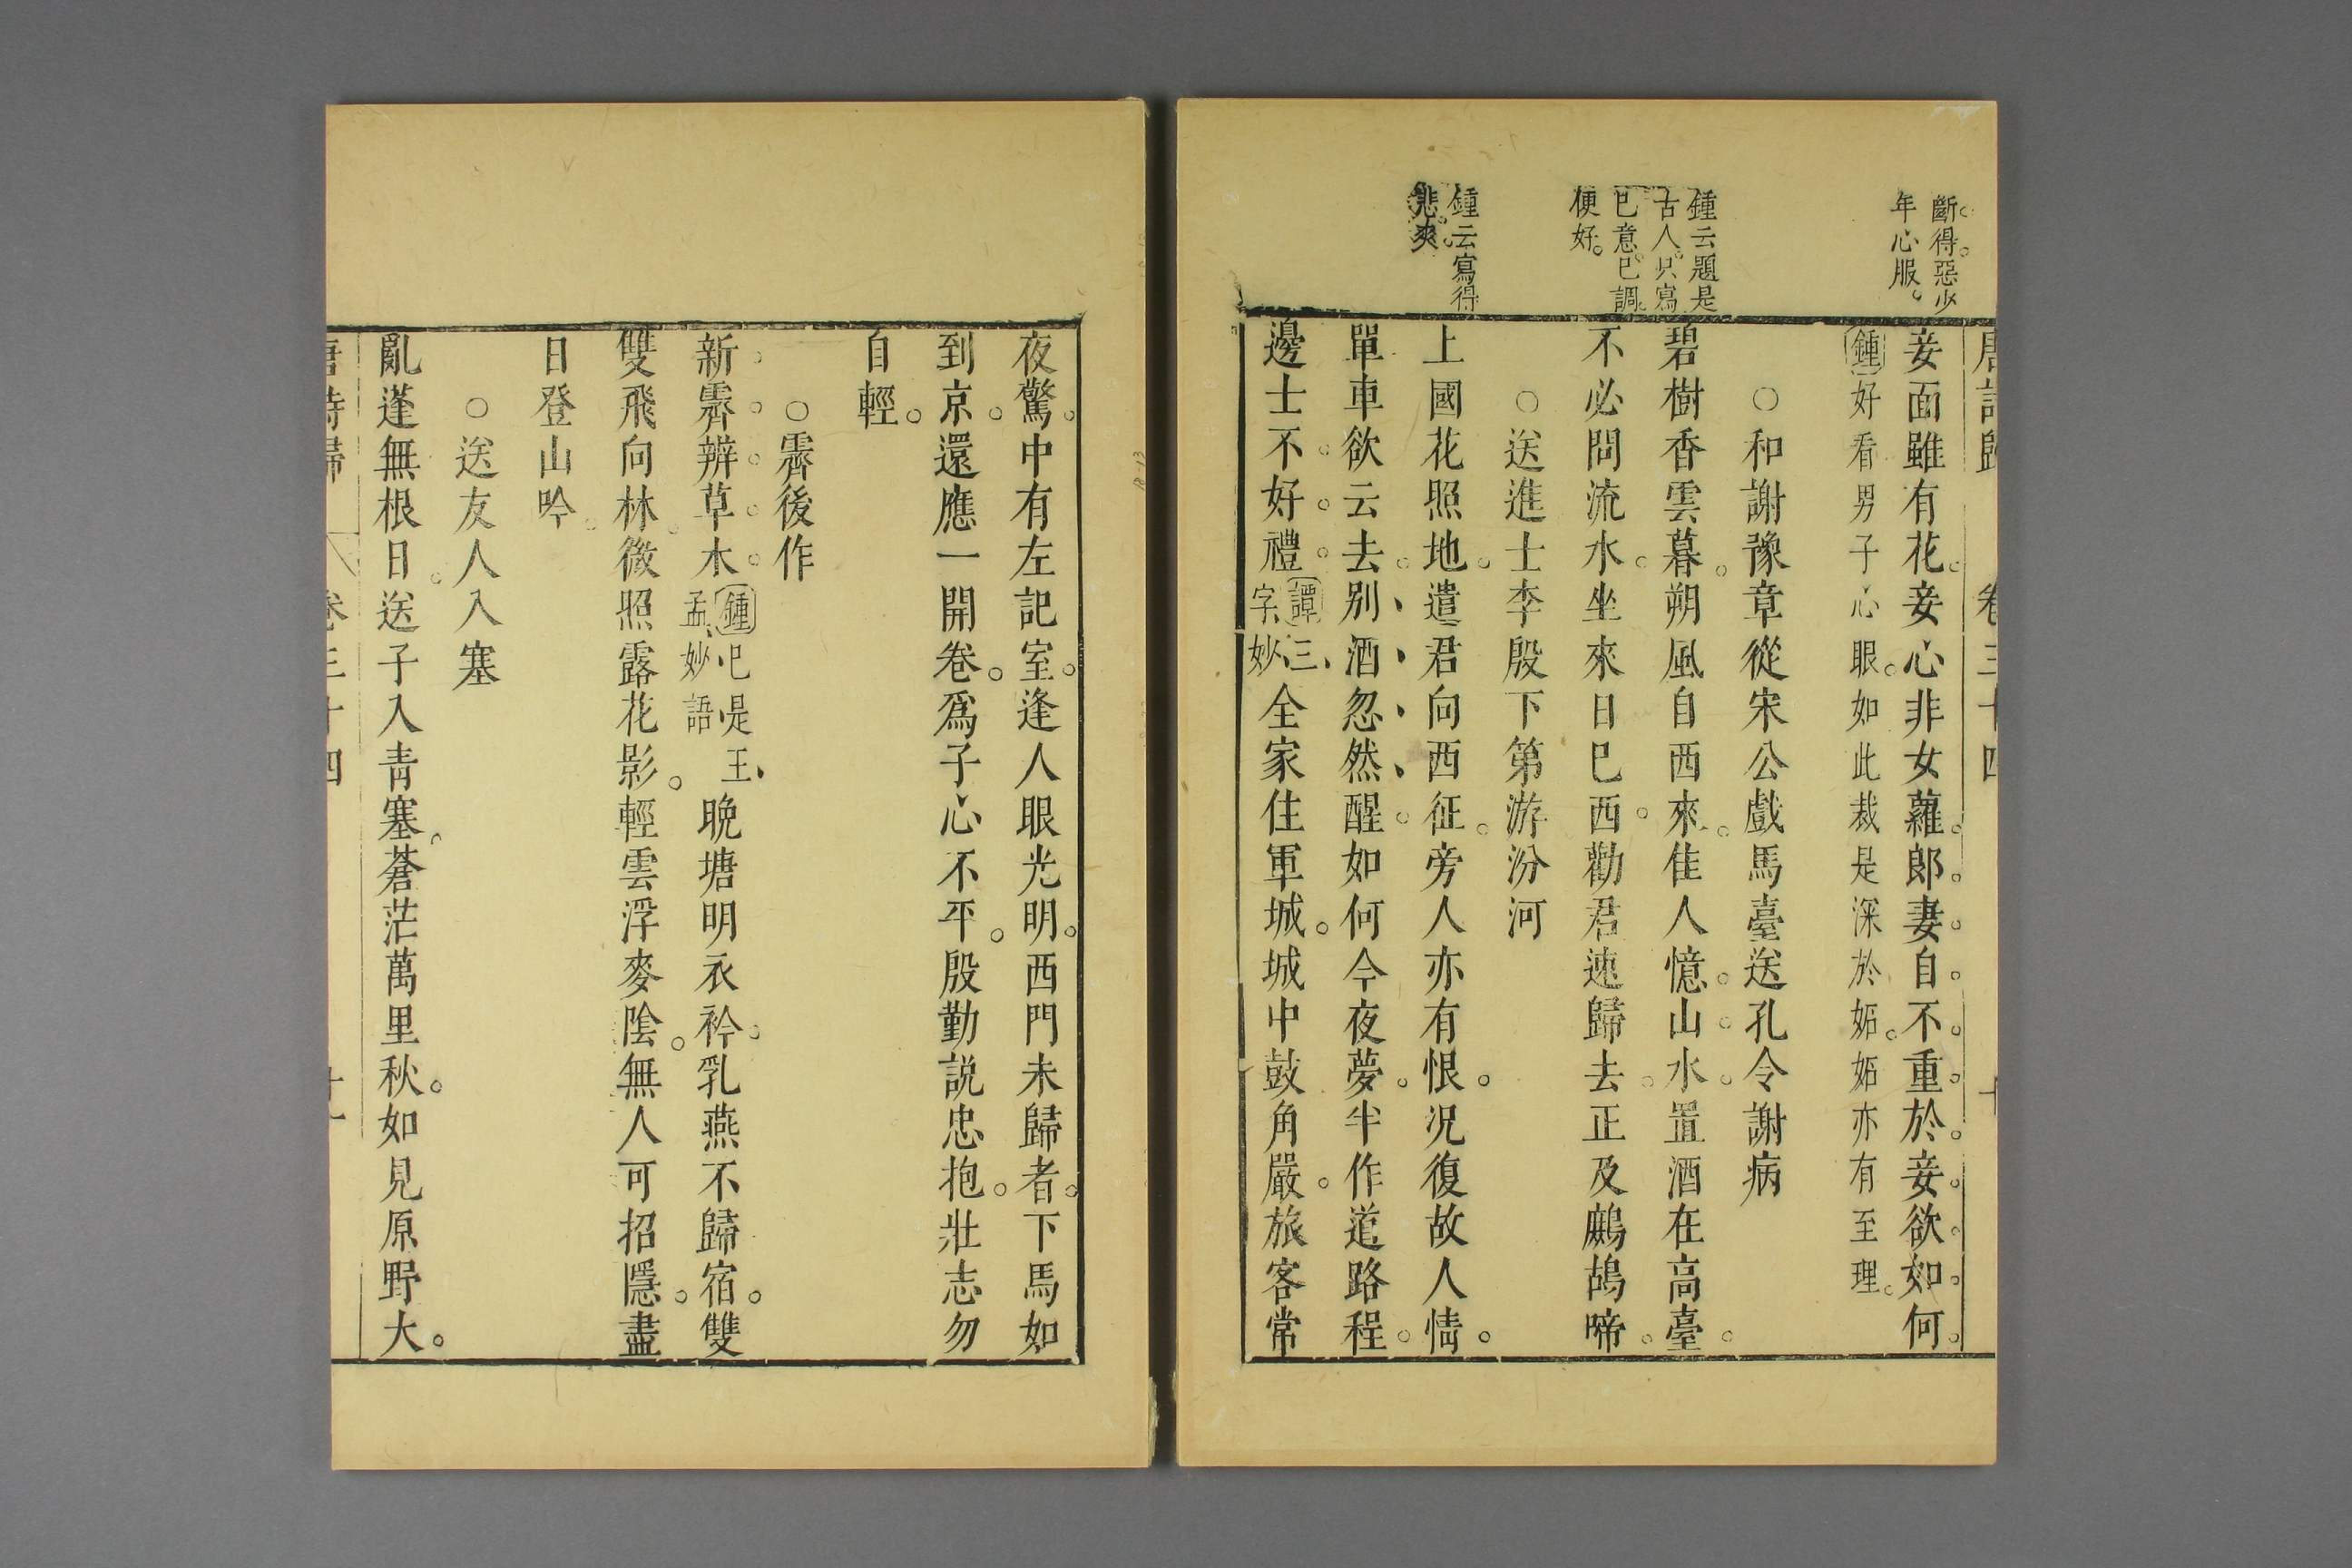 斷得惡少
年心服
唐詩歸 卷三十四 十
妾面雖有花妾心非女蘿郎妻自不重於妾欲如何
鍾好看男子心眼如此裁是深於妬妬亦有至理
○和謝豫章從宋公戲馬臺送孔令謝病
鍾云題是
古人只寫
巳意巳調
便好
碧樹香雲暮朔風自西來佳人憶山水置酒在高臺
不必問流水坐來日巳西勸君速歸去正及鷓鴣啼
○送進士李殷下第游汾河
鍾云寫得
悲爽
上國花照地遣君向西征旁人亦有恨況復故人情
單車欲云去別酒忽然醒如何今夜夢半作道路程
邊士不好禮譚三字妙全家住軍城城中鼓角嚴旅客常
夜驚中有左記室逢人眼光明西門未歸者下馬如
到京還應一開卷爲子心不平殷勤説忠抱壯志勿
自輕
○霽後作
新霽辨草木鍾巳是王孟妙語晚塘明衣衿乳燕不歸宿雙
雙飛向林微照露花影輕雲浮麥陰無人可招隱盡
日登山吟
○送友人入塞
亂蓬無根日送子入青塞蒼茫萬里秋如見原野大
唐詩歸 卷三十四 十一